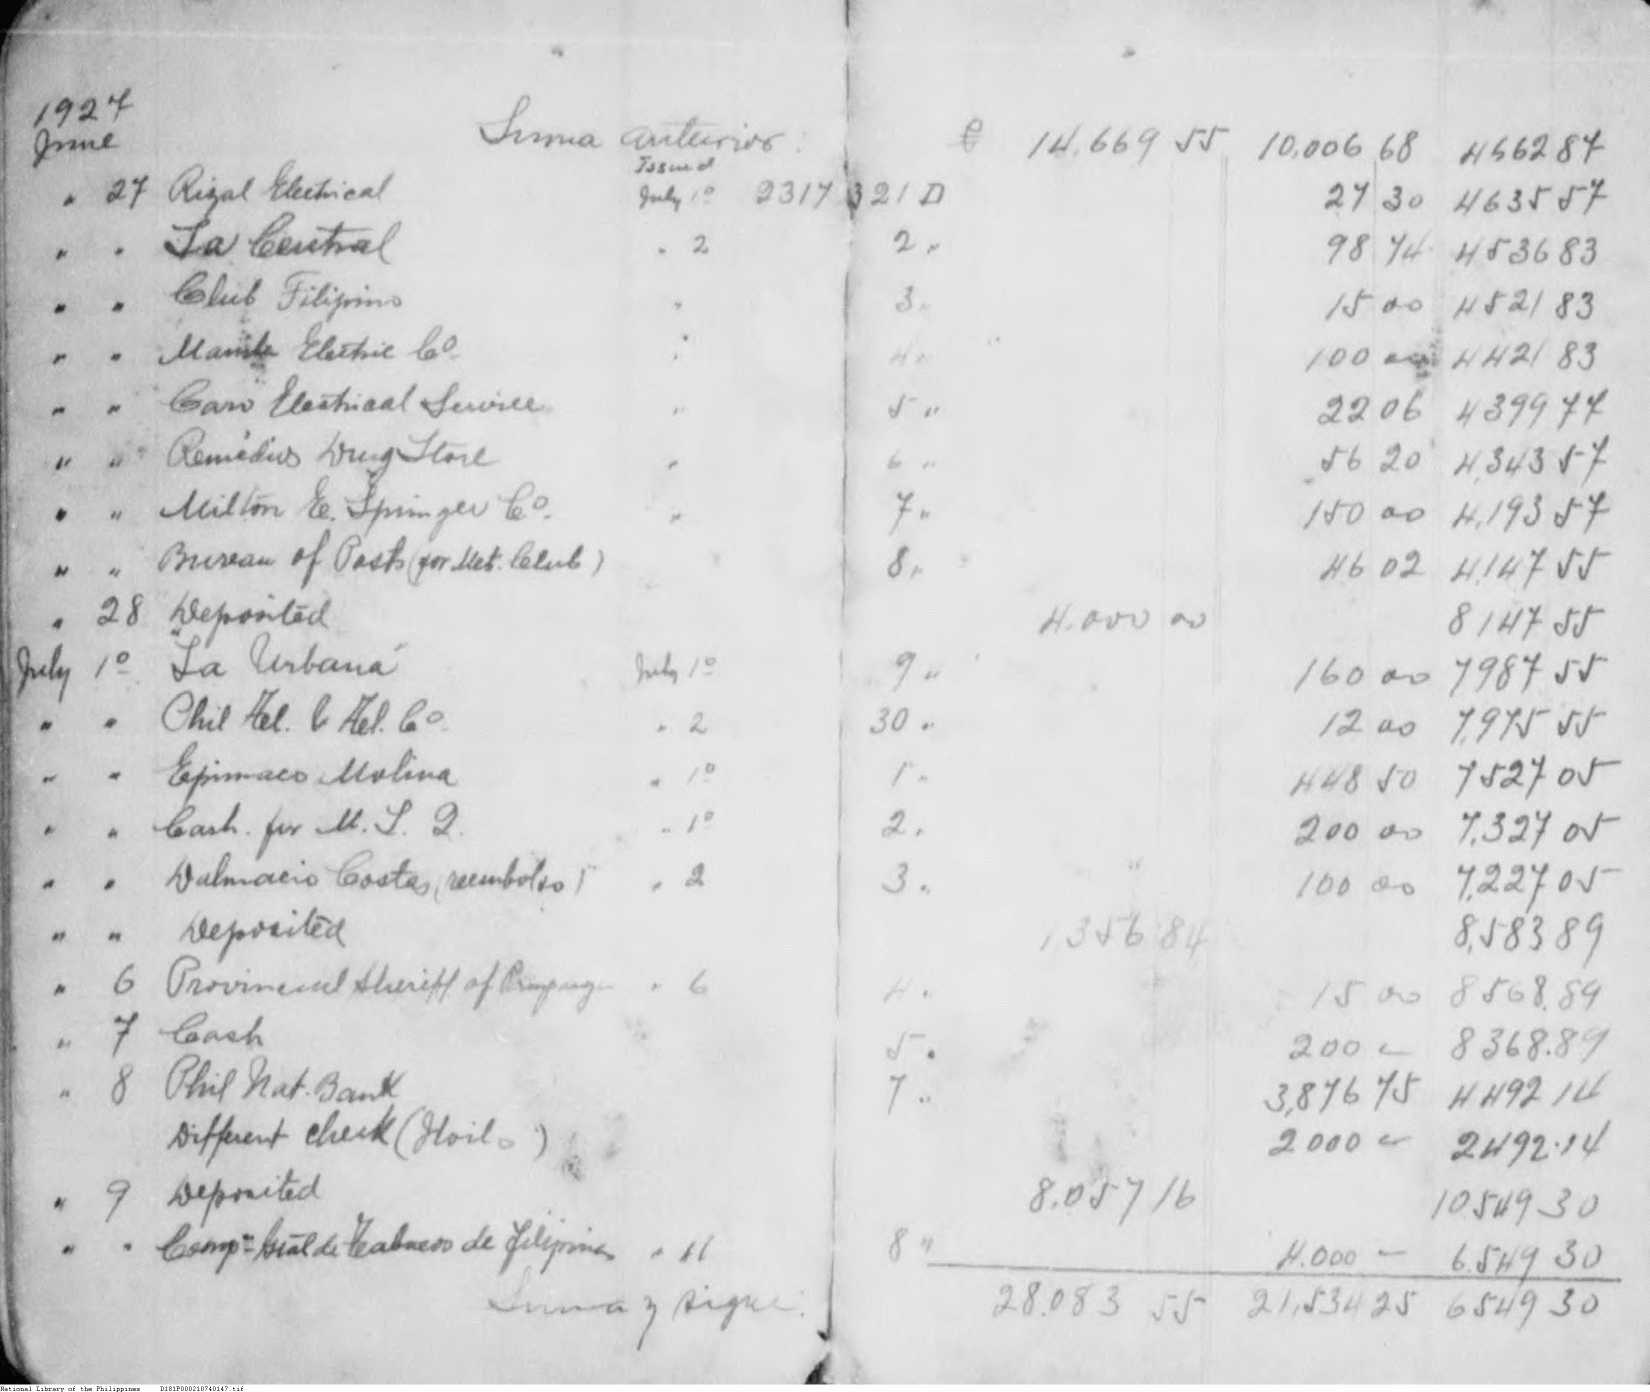 1927
June Suma anterior: ₱ 14.669 55 10.006 68 4662 87
Issued
" 27 Rizal Electrical July 1º 2317321 D 27 30 4635 57
" " La Central " 2 2 " 98 74 4536 83
" " Club Filipino " 3 " 15 00 4521 83
" " Manila Electric Cº. " 4 " 100 00 4421 83
" " Caro Electrical Service " 5 " 22 06 4399 77
" " Remedios Drug Store " 6 " 56 20 4,343 57
" " Milton E. Springer Cº. " 7 " 150 00 4,193 57
" " Bureau of Posts (for Met. Club) 8 " 46 02 4,147 55
" 28 Deposited 4.000 00 8147 55
July 1º "La Urbana" July 1º 9 " 160 00 7987 55
" " Phil Tel. & Tel. Cº. " 2 30 " 12 00 7,975 55
" " Epimaco Molina " 1º 1 " 448 50 7527 05
" " Cash. for M. L. Q. " 1º 2 " 200 00 7,327 05
" " Dalmacio Costas (reembolso) " 2 3 " 100 00 7,227 05
" " Deposited 1356 84 8,583 89
" 6 Provincial Sheriff of Pampanga " 6 4 " 15 00 8568.89
" 7 Cash 5 " 200 — 8368.89
" 8 Phil Nat. Bank 7 " 3,876 75 4492 14
Different check (Iloilo) 2000 — 2492.14
" 9 Deposited 8.057 16 10549 30
" " Comp.ª Gral de Tabacos de Filipinas " 11 8 " 4.000 — 6.549 30
Suma y sigue: 28.083 55 21,534 25 6549 30
National Library of the Philippines D181P000210740147.tif